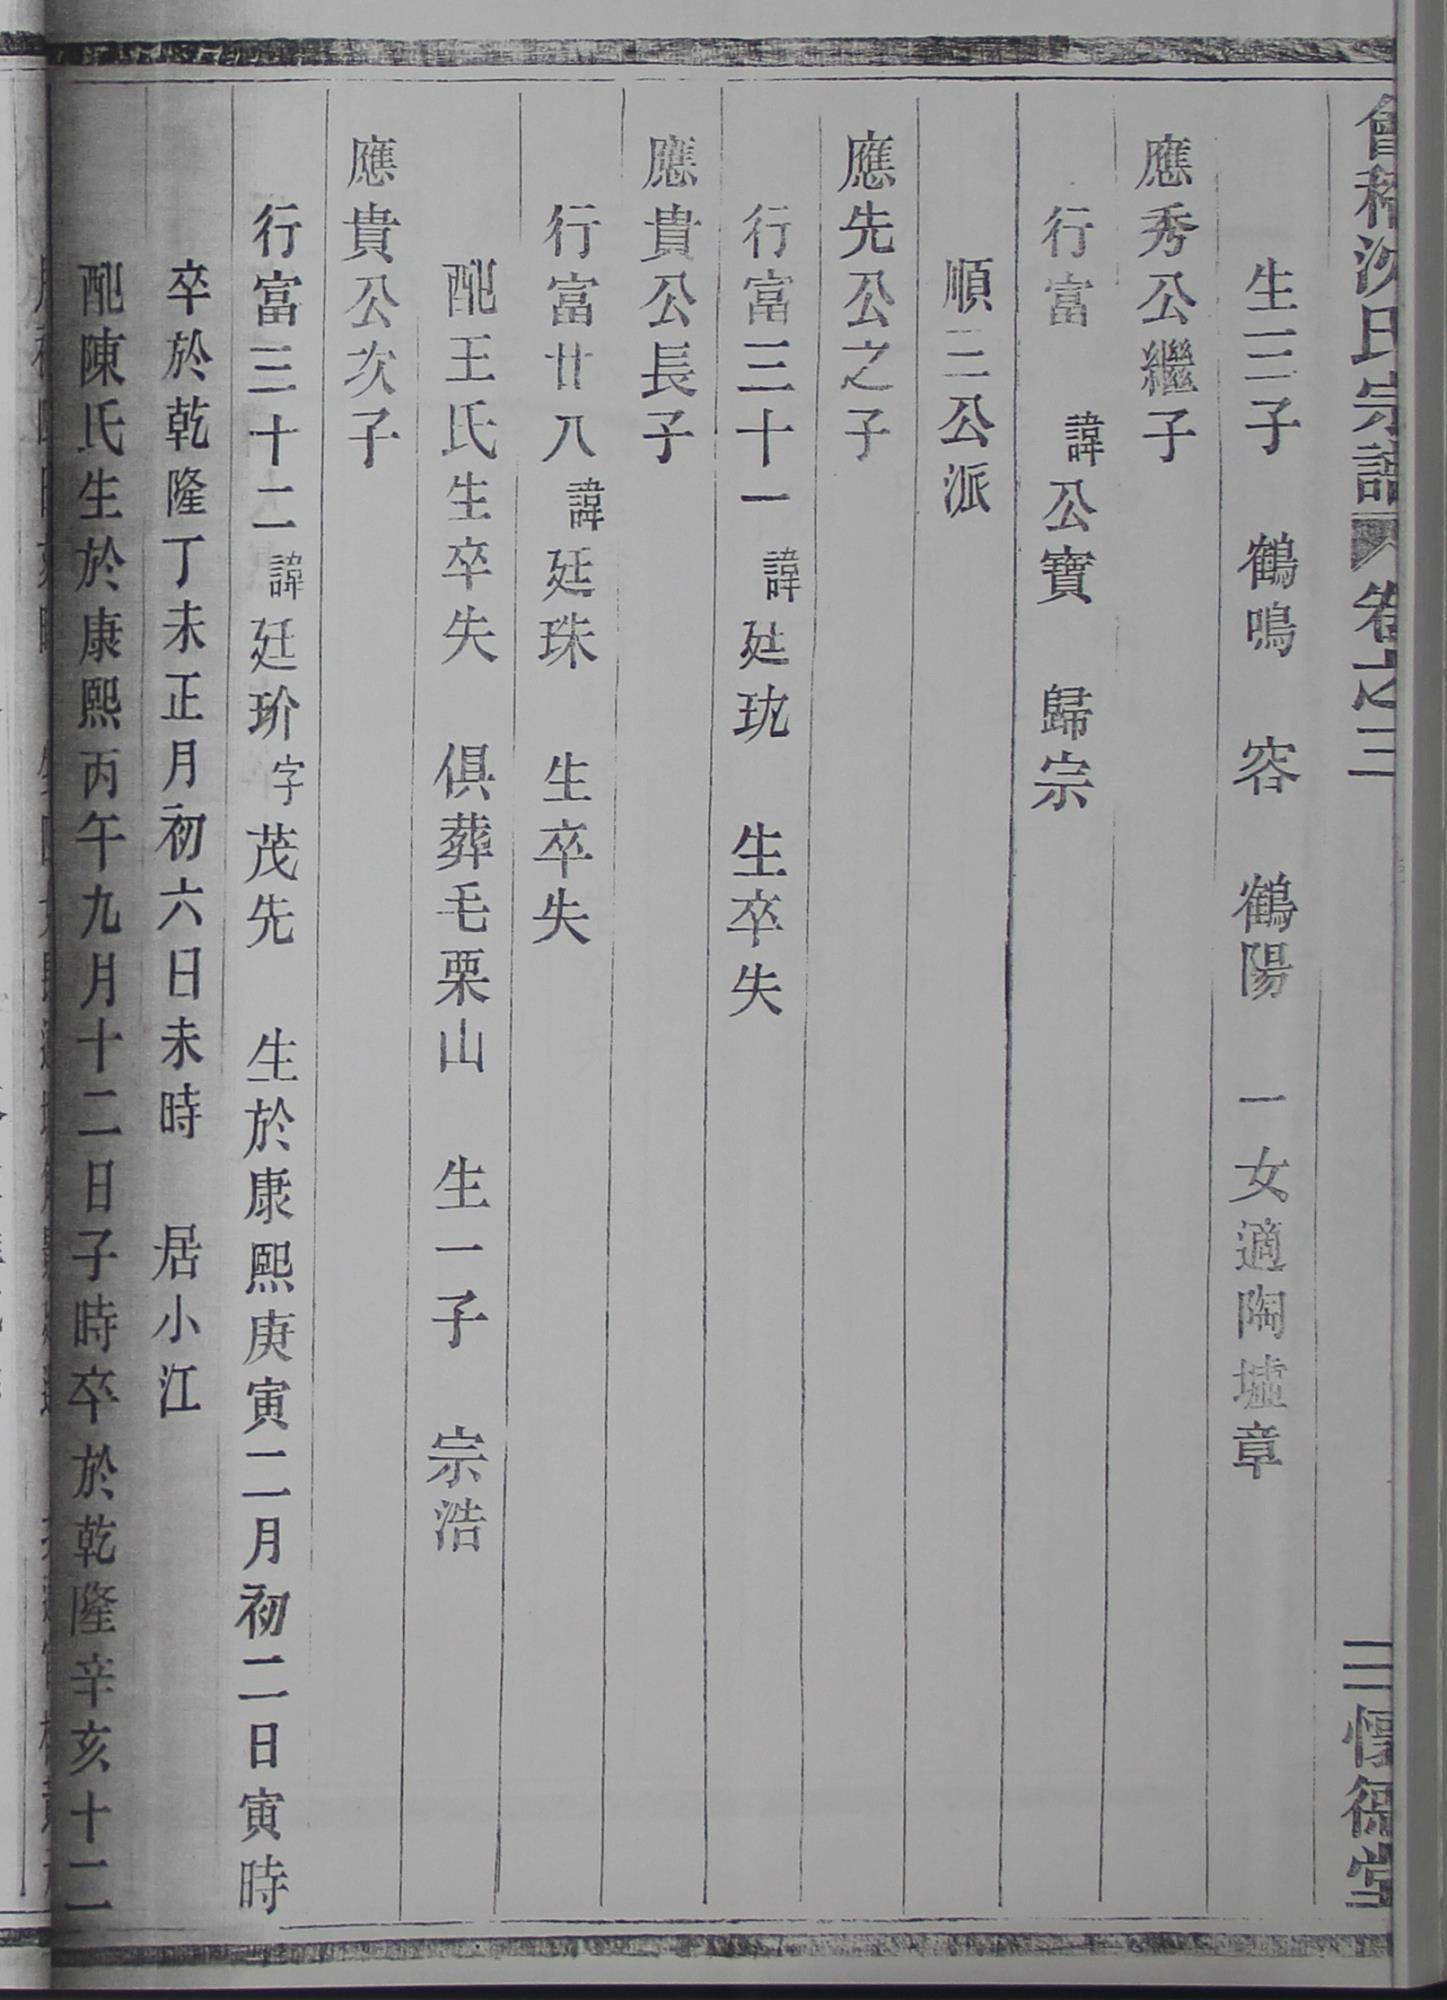 會稽沈氏宗譜 卷之三 二 懷德堂
生三子 鶴鳴 容 鶴陽 一女適陶墟章
應秀公繼子
行富 諱公寶 歸宗
順二公派
應先公之子
行富三十一諱廷玧 生卒失
應貴公長子
行富廿八諱廷珠 生卒失
配王氏生卒失 俱葬毛栗山 生一子 宗浩
應貴公次子
行富三十二諱廷玠字茂先 生於康熙庚寅二月初二日寅時
卒於乾隆丁未正月初六日未時 居小江
配陳氏生於康熙丙午九月十二日子時卒於乾隆辛亥十二